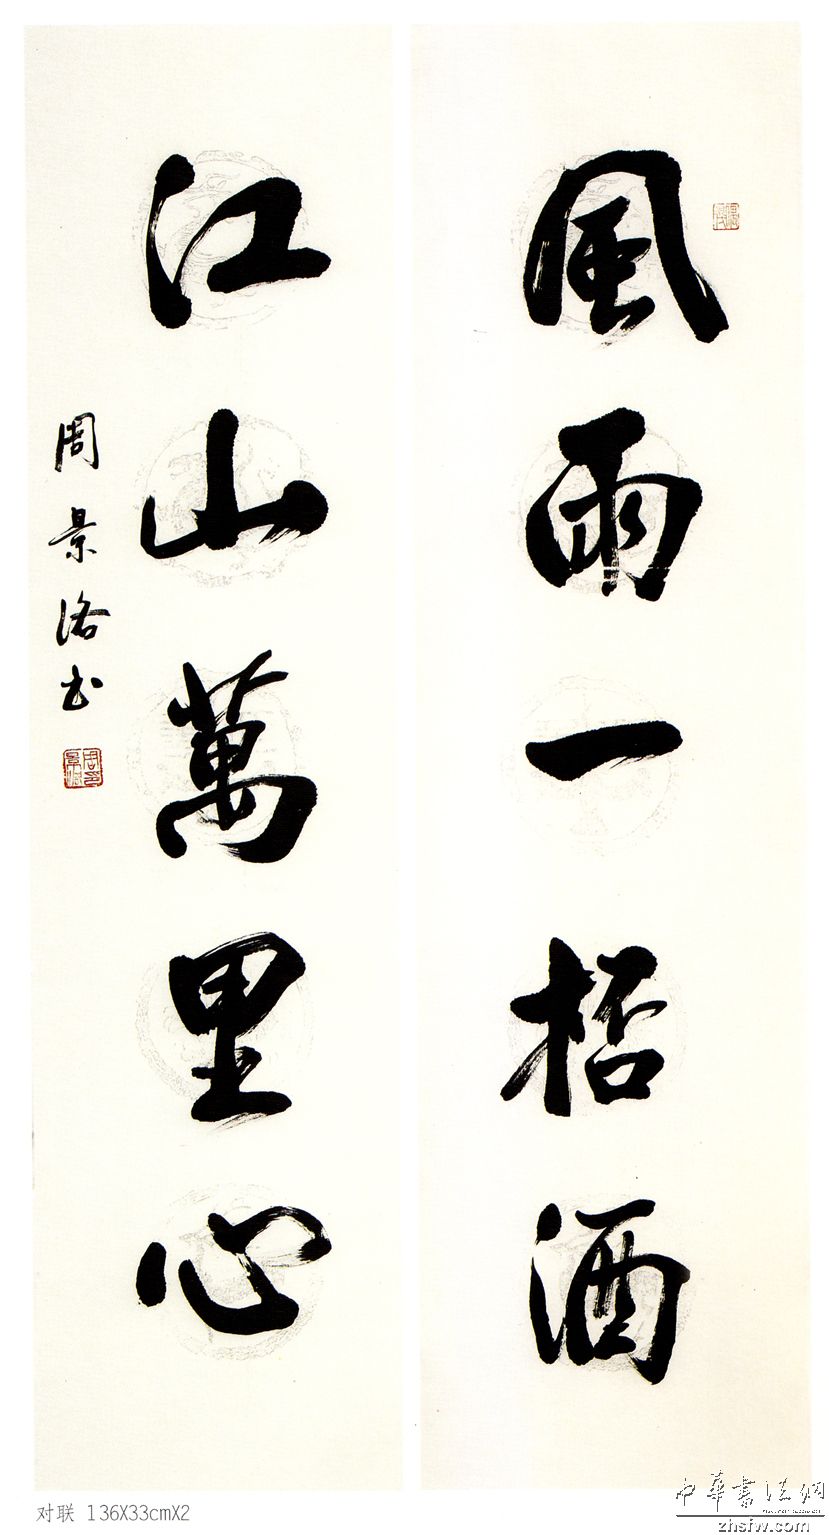 風雨一桮酒
江山萬里心
周景洛书
对联 136X33cmX2
中華書法網
zhsfw.com